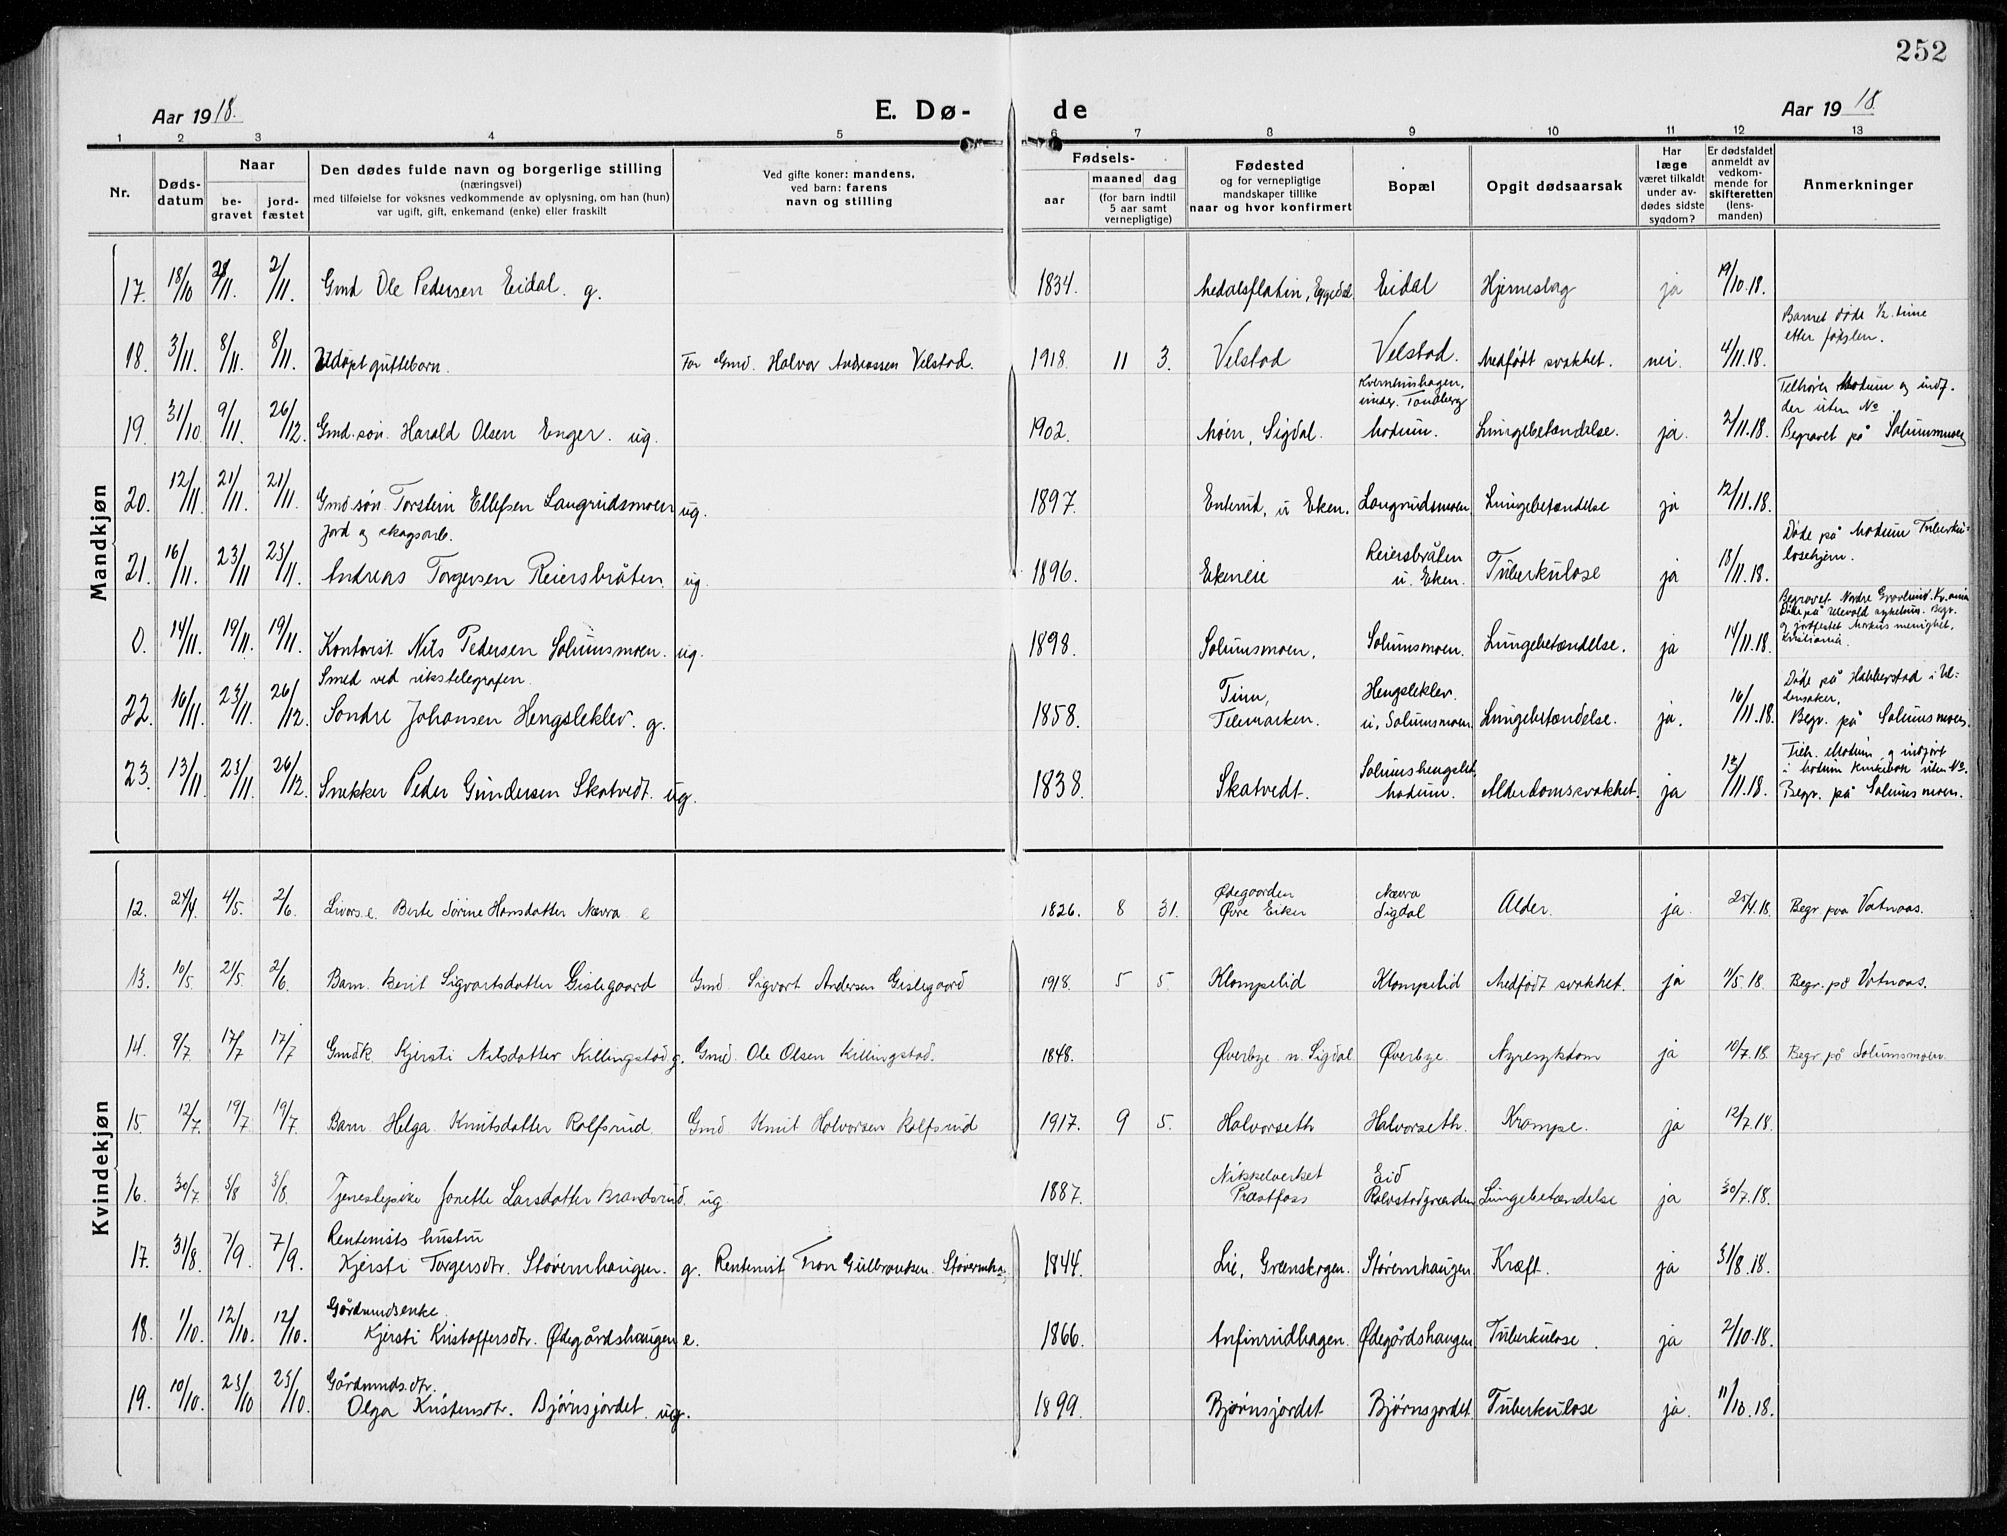 252
Aar 1918. E. Dø- de Aar 1918.
1 2 3 4 5 6 7 8 9 10 11 12 13
Nr. Døds-datum Naar be-gravet jord-fæstet Den dødes fulde navn og borgerlige stilling (næringsvei) med tilføielse for voksnes vedkommende av oplysning, om han (hun) var ugift, gift, enkemand (enke) eller fraskilt Ved gifte koner: mandens, ved barn: farens navn og stilling Fødsels- aar maaned dag (for barn indtil 5 aar samt vernepligtige) Fødested og for vernepligtige mandskaper tillike naar og hvor konfirmert Bopæl Opgit dødsaarsak Har læge været tilkaldt under av-dødes sidste sygdom? Er dødsfaldet anmeldt av vedkom-mende for skifteretten (lens-manden) Anmerkninger
Mandkjøn
17. 18/10 2/11. 2/11. Gmd Ole Pedersen Eidal. g. 1834. Medalsflatin, Eggedal Eidal Hjerneslag ja 19/10.18.
18. 3/11. 8/11. 8/11. Udøpt guttebarn. Far Gmd. Halvor Andreassen Velstad. 1918. 11 3. Velstad Velstad. Medfødt svakhet. nei. 4/11.18. Barnet døde 1/2 time etter fødslen.
19. 31/10 9/11. 26/12. Gmd.søn. Harald Olsen Enger. ug. 1902. Moen, Sigdal. Kvernhushagen, under Tandberg Modum. Lungebetændelse. ja. 2/11.18. Tilhører Modum og indf. der uten No Begravet på Solumsmoen
20. 12/11. 21/11. 21/11. Gmd søn Torstein Ellefsen Langrudsmoen ug. 1897. Enterud, u Eken. Langrudsmoen Lungebetændelse ja 12/11.18.
21. 16/11. 23/11 23/11. Jord og skogsarb. Andreas Torgersen Reiersbråten. ug. 1896. Ekeneie Reiersbråten u. Eken. Tuberkulose ja 18/11.18. Døde på Modum Tuberku-losehjem.
0. 14/11. 19/11. 19/11. Kontorist Nils Pedersen Solumsmoen. ug. 1898. Solumsmoen. Solumsmoen. Lungebetændelse. ja 14/11.18. Begravet Nordre Gravlund. Kr.ania Døde på Ulevold sykehus. Begr. og jordfestet Markus menighet, Kristiania.
22. 16/11. 23/11. 26/12. Smed ved rikstelegrafen. Sondre Johansen Hengsleklev. g. 1858. Tinn, Telemarken. Hengsleklev. u. Solumsmoen Lungebetændelse. ja. 16/11.18. Døde på Habberstad i Ul-lensaker. Begr. på Solumsmoen.
23. 13/11. 23/11. 26/12. Snekker Peder Gundersen Skatvedt. ug. 1838. Skatvedt. Solumshengslet, Modum. Alderdomssvakhet. ja 13/11.18. Tilh. Modum og indført i Modum kirkebok uten No. Begr. på Solumsmoen.
Kvindekjøn
12. 24/4. 4/5. 2/6. Livørs.e. Berte Sørine Hansdatter Nævra e 1826. 8 31. Ødegaarden Øvre Eiker Nævra Sigdal Alder. ja. 25/4.18. Begr. paa Vatnaas.
13. 10/5. 21/5. 2/6. Barn. Berit Sigvartsdatter Gislegaard Gmd Sigvart Andersen Gislegaard 1918. 5 5. Klampelid Klampelid Medfødt svakhet. ja 11/5.18. Begr. på Vatnaas.
14. 9/7 17/7 17/7 Gmdk. Kjersti Nilsdatter Killingstad g. Gmd. Ole Olsen Killingstad. 1848. Øverbye n. Sigdal Øverbye. Nyresykdom ja 10/7.18. Begr. på Solumsmoen
15. 12/7. 19/7 19/7. Barn Helga Knutsdatter Rolfsrud Gmd Knut Halvorsen Rolfsrud 1917. 9 5. Halvorseth Halvorseth. Krampe. ja 12/7.18.
16. 30/7. 3/8 3/8. Tjenestepike Jonette Larsdatter Brandsrud. ug 1887. Nikkelverket Præstfoss Eid Ralvstadgrænden Lungebetændelse ja 30/7.18.
17. 31/8. 7/9. 7/9. Rentenists hustru Kjersti Torgersdtr. Støvernhaugen. g. Rentenist Tron Gulbrandsen Støvernha. 1844. Lie, Grenskogen. Støvernhaugen. Kræft. ja 31/8.18.
18. 1/10. 12/10. 12/10. Gårdmandsenke. Kjersti Kristoffersdtr. Ødegårdshaugen e. 1866. Anfinrudhagen. Ødegårdshaugen. Tuberkulose. ja 2/10.18.
19. 10/10. 23/10 23/10. Gårdmandsdtr. Olga Kristensdtr. Bjørnsjordet. ug. 1899. Bjørnsjordet Bjørnsjordet. Tuberkulose ja. 11/10.18.